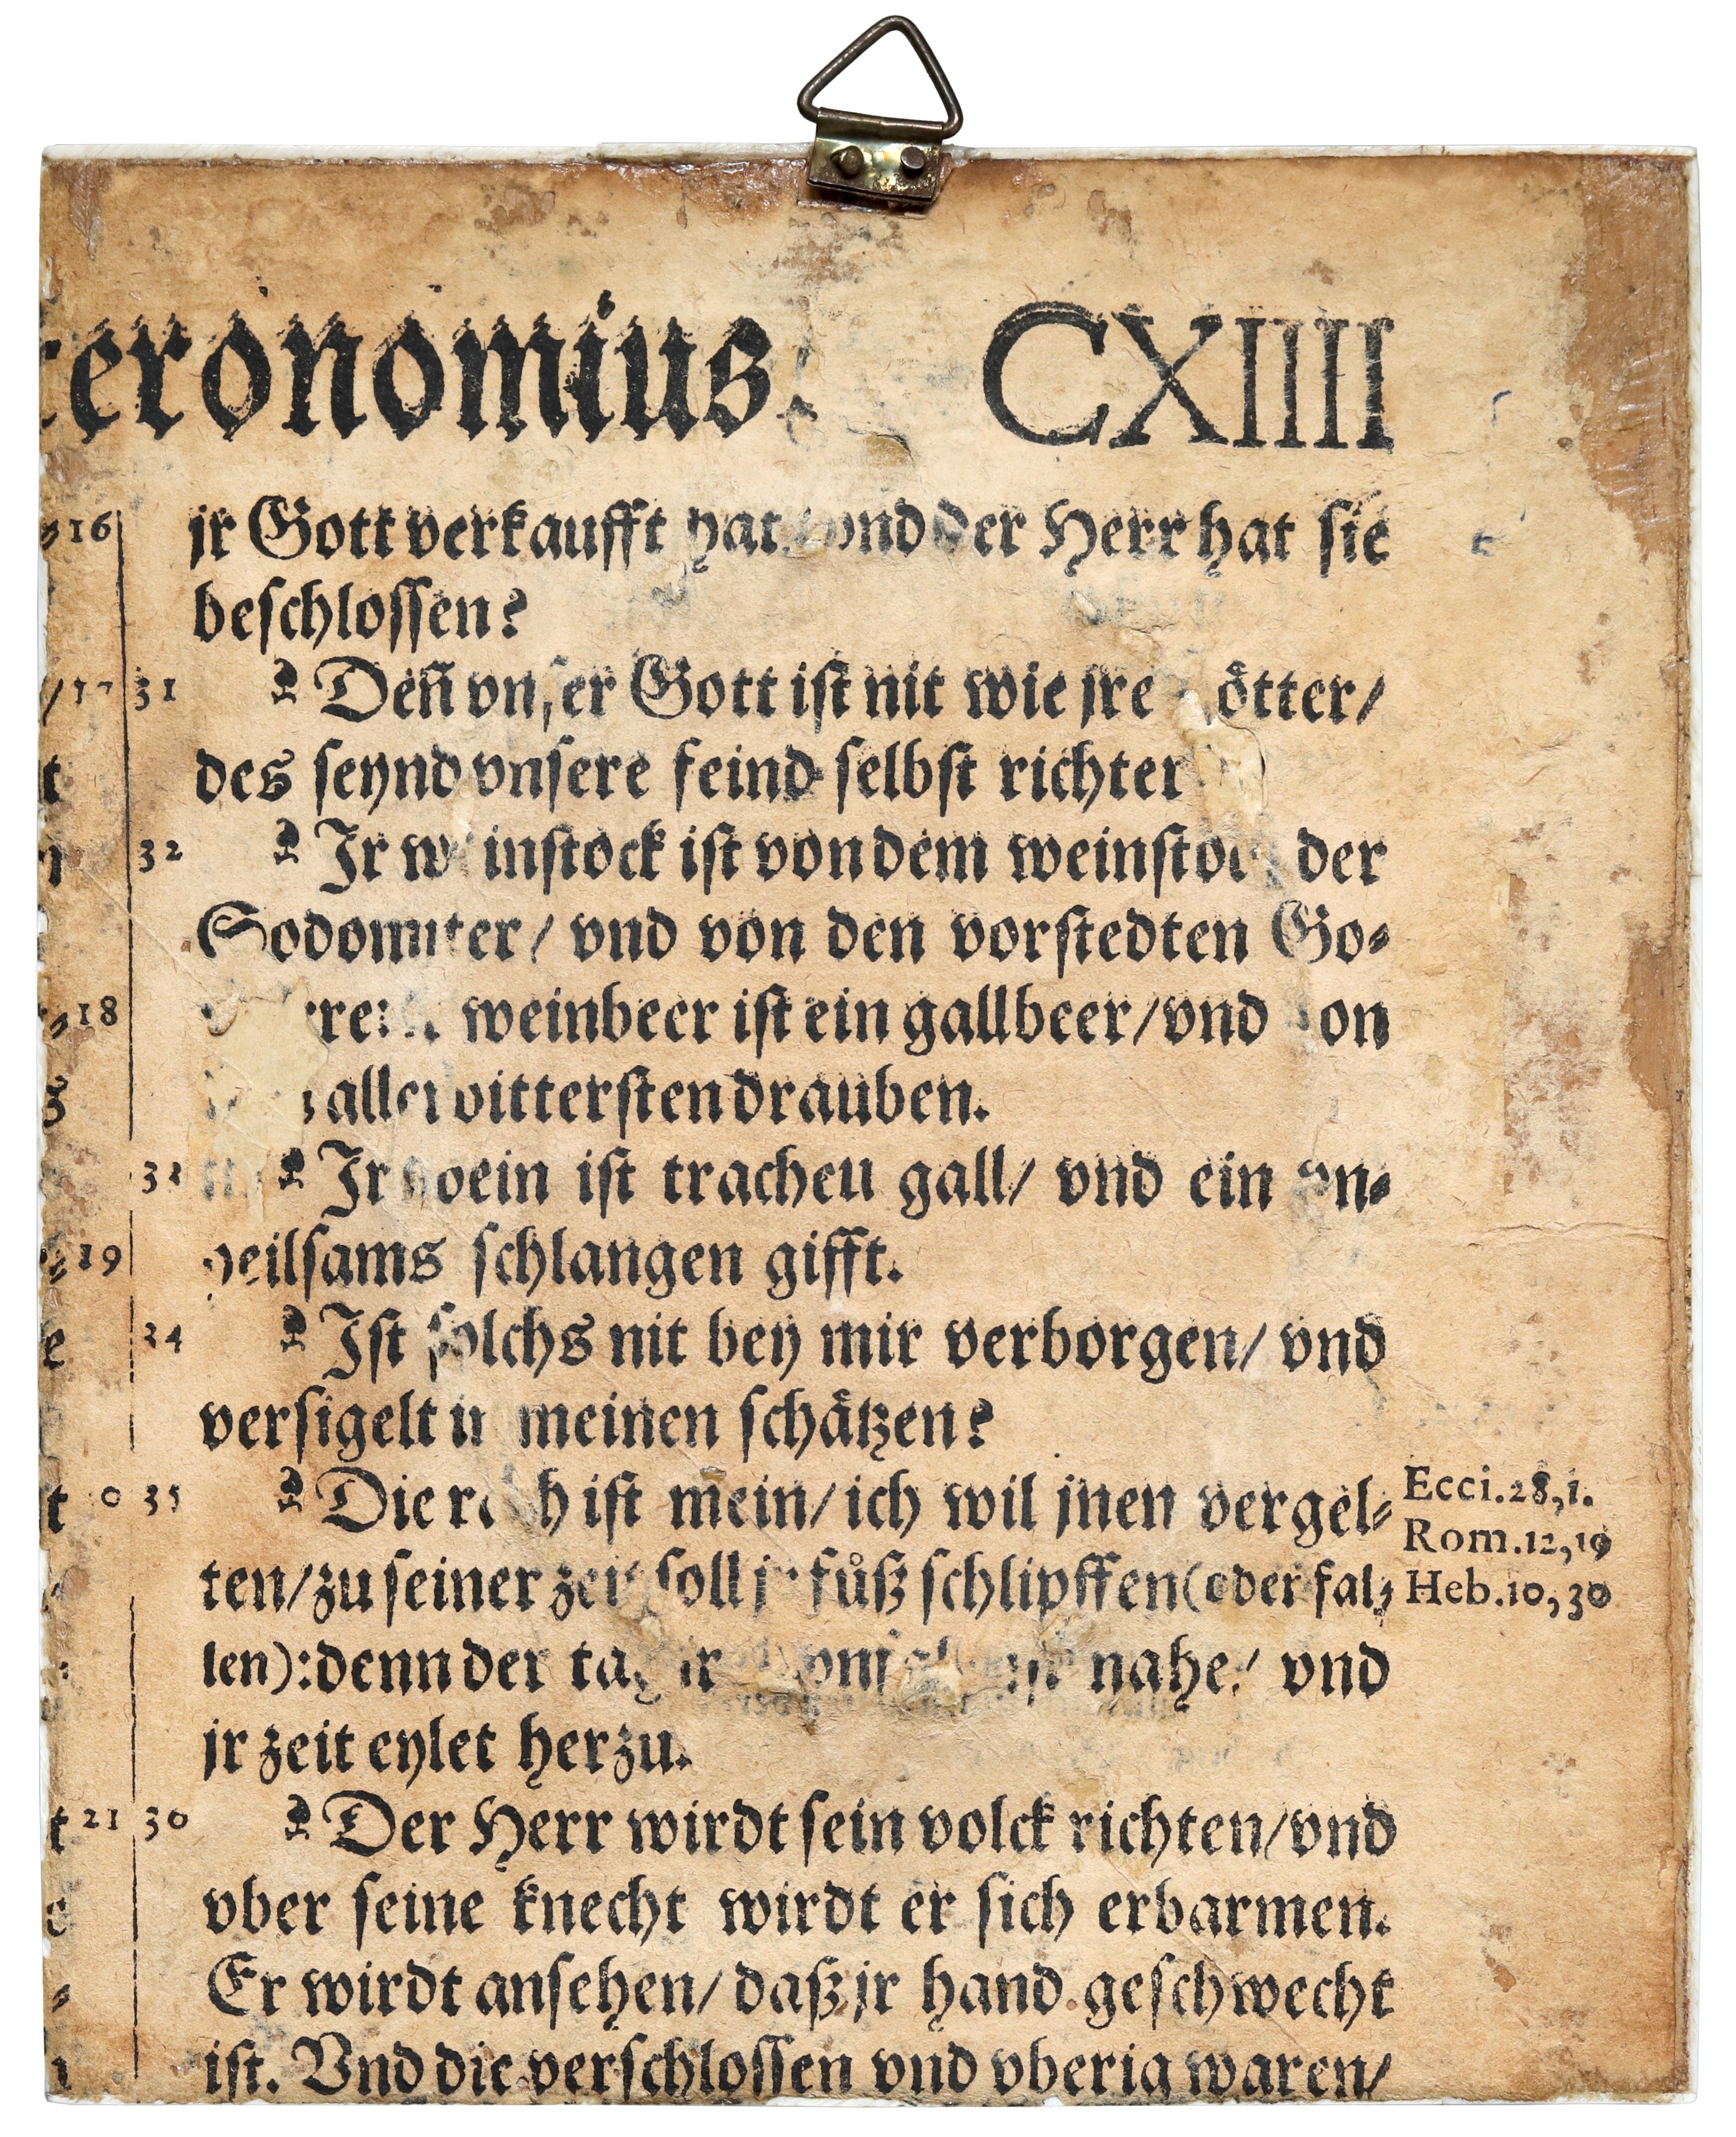 teronomius. CXIIII
16 jr Gott verkaufft hat vnd der Herr hat sie
beschlossen?
31 Deñ vnser Gott ist nit wie jre ötter/
des seynd vnsere feind selbst richter
32 Jr weinstock ist von dem weinstock der
Sodomiter/ vnd von den vorstedten Go⸗
18 weinbeer ist ein gallbeer/vnd von
bittersten drauben.
Jr wein ist trachen gall/ vnd ein vn⸗
19 heilsams schlangen gifft.
34 Ist solchs nit bey mir verborgen/ vnd
versigelt in meinen schåtzen?
35 Die rach ist mein/ ich wil jnen vergel⸗
Ecci.28,1.
Rom.12,19
ten/zu seiner zeit soll jr fůß schlipffen(oder fal⸗
Heb.10,30
len):denn der tag nahe/ vnd
jr zeit eylet herzu.
t 21 30 Der Herr wirdt sein volck richten/vnd
vber seine knecht wirdt er sich erbarmen.
Er wirdt ansehen/ daß jr hand geschwecht
ist. Vnd die verschlossen vnd vberig waren/